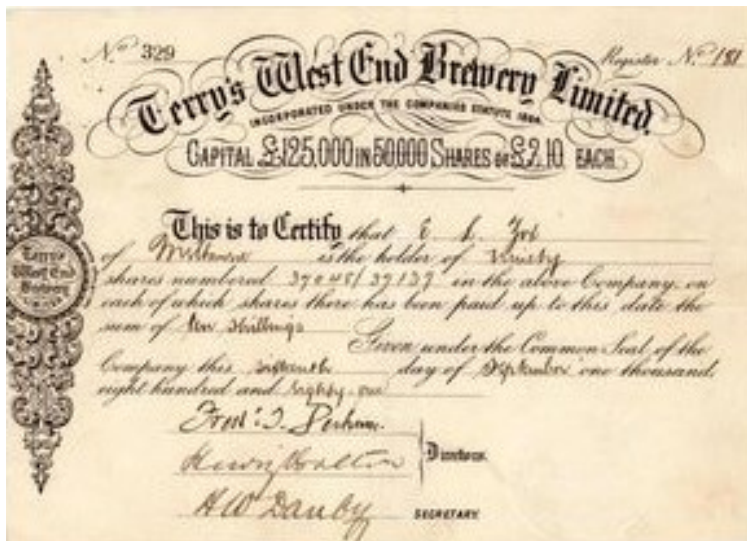 No. 329
Register No. 181
Terry's West End Brewery Limited.
INCORPORATED UNDER THE COMPANIES STATUTE 1864.
CAPITAL £125,000 IN 50,000 SHARES OF £2.10 EACH
This is to Certify that E.
of is the holder of Ninety
shares numbered 39048/39137 in the above Company, on
each of which shares there has been paid up to this date the
sum of ten shillings
Given under the Common Seal of the
Company this day of September one thousand,
eight hundred and Eighty one
Directors.
H W Danby SECRETARY
Terry's
West End
Brewery
LIMITED